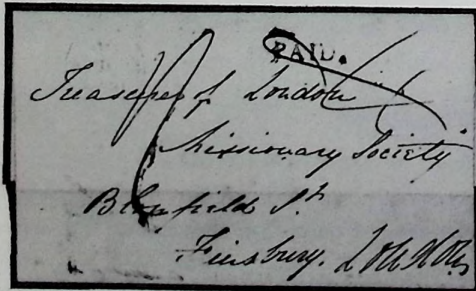 PAID.
Treasurer of London
Missionary Society
Blomfield St.
Finsbury. London